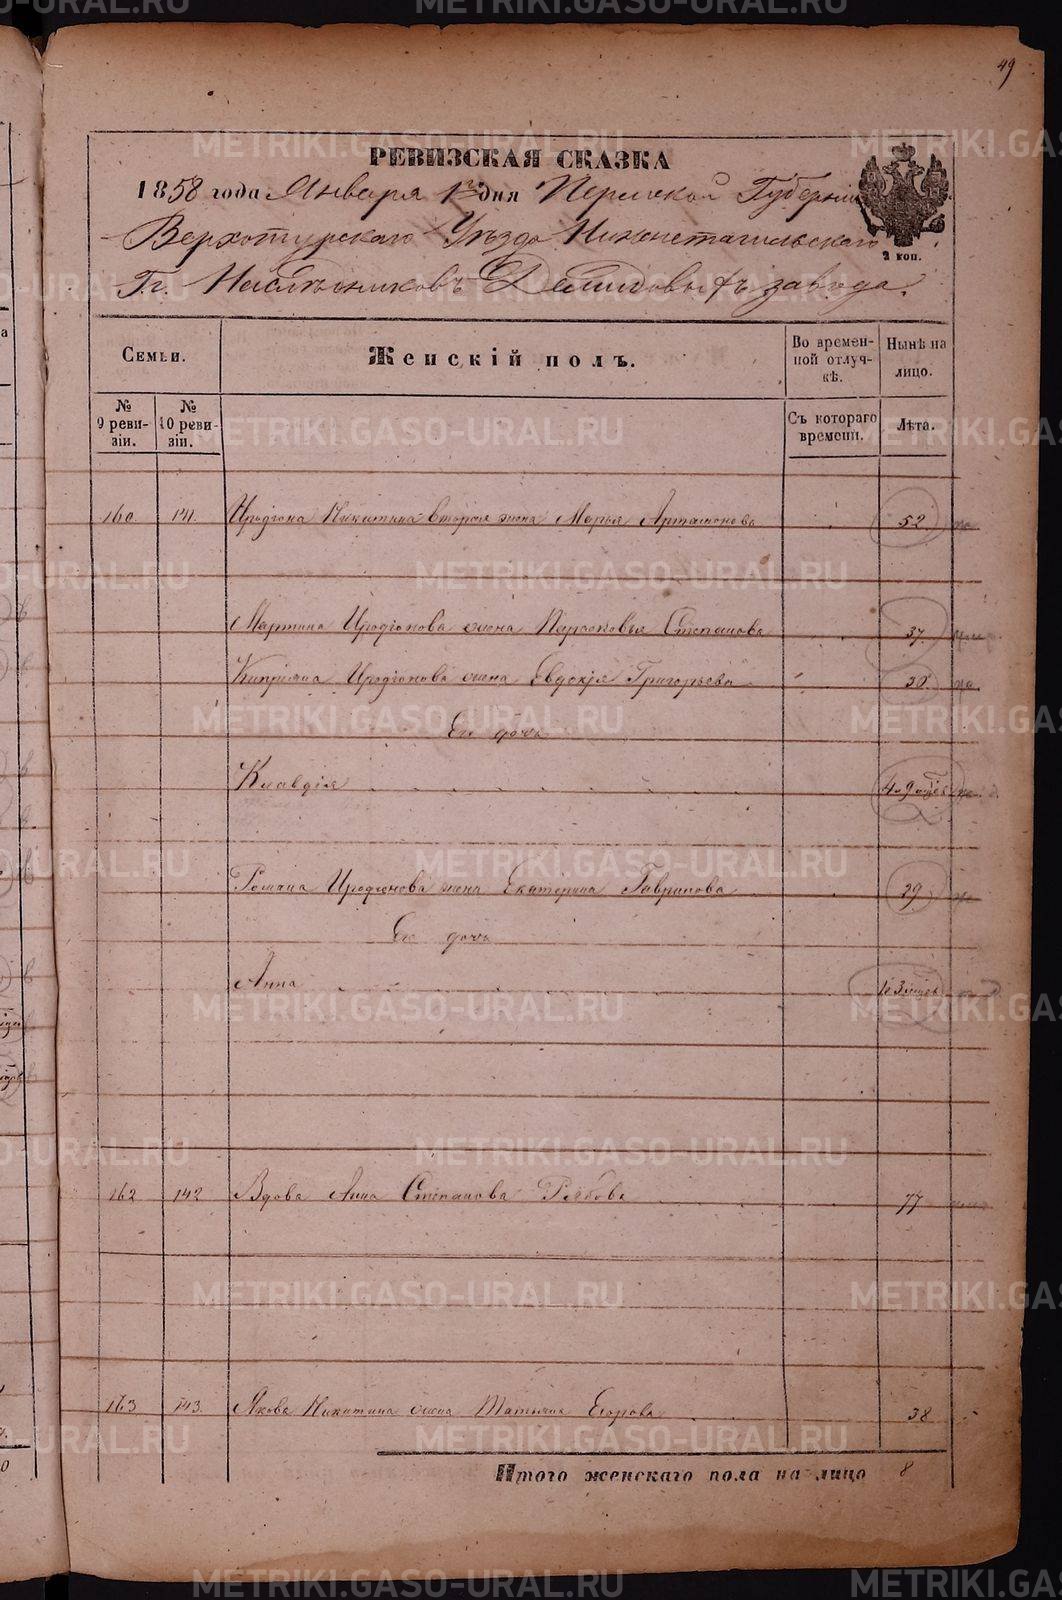 49
РЕВИЗСКАЯ СКАЗКА
1858 года Января 1го дня Пермской Губерніи
Верхотурскаго Уѣзда Нижнетагильскаго
Гг. Наслѣдниковъ Демидовыхъ завода.
2 коп.
Семьи. Женскій полъ. Во временной отлучкѣ. Нынѣ на лицо.
№ 9 ревизіи. № 10 ревизіи. Съ котораго времени. Лѣта.
160. 141. Иродіона Никитина вторая жена Марья Артамонова 52
Мартина Иродіонова жена Парасковья Степанова 37
Кипріяна Иродіонова жена Евдокія Григорьева 30
Ея дочь
Клавдія 4 и 9 мцевъ
Романа Иродіонова жена Екатерина Гаврилова 29
Ея дочь
Анна 1 и 3 мцев
162 142 Вдова Анна Степанова Рябова 77
163 143. Якова Никитина жена Татьяна Егорова 38
Итого женскаго пола на лицо 8
METRIKI.GASO-URAL.RU